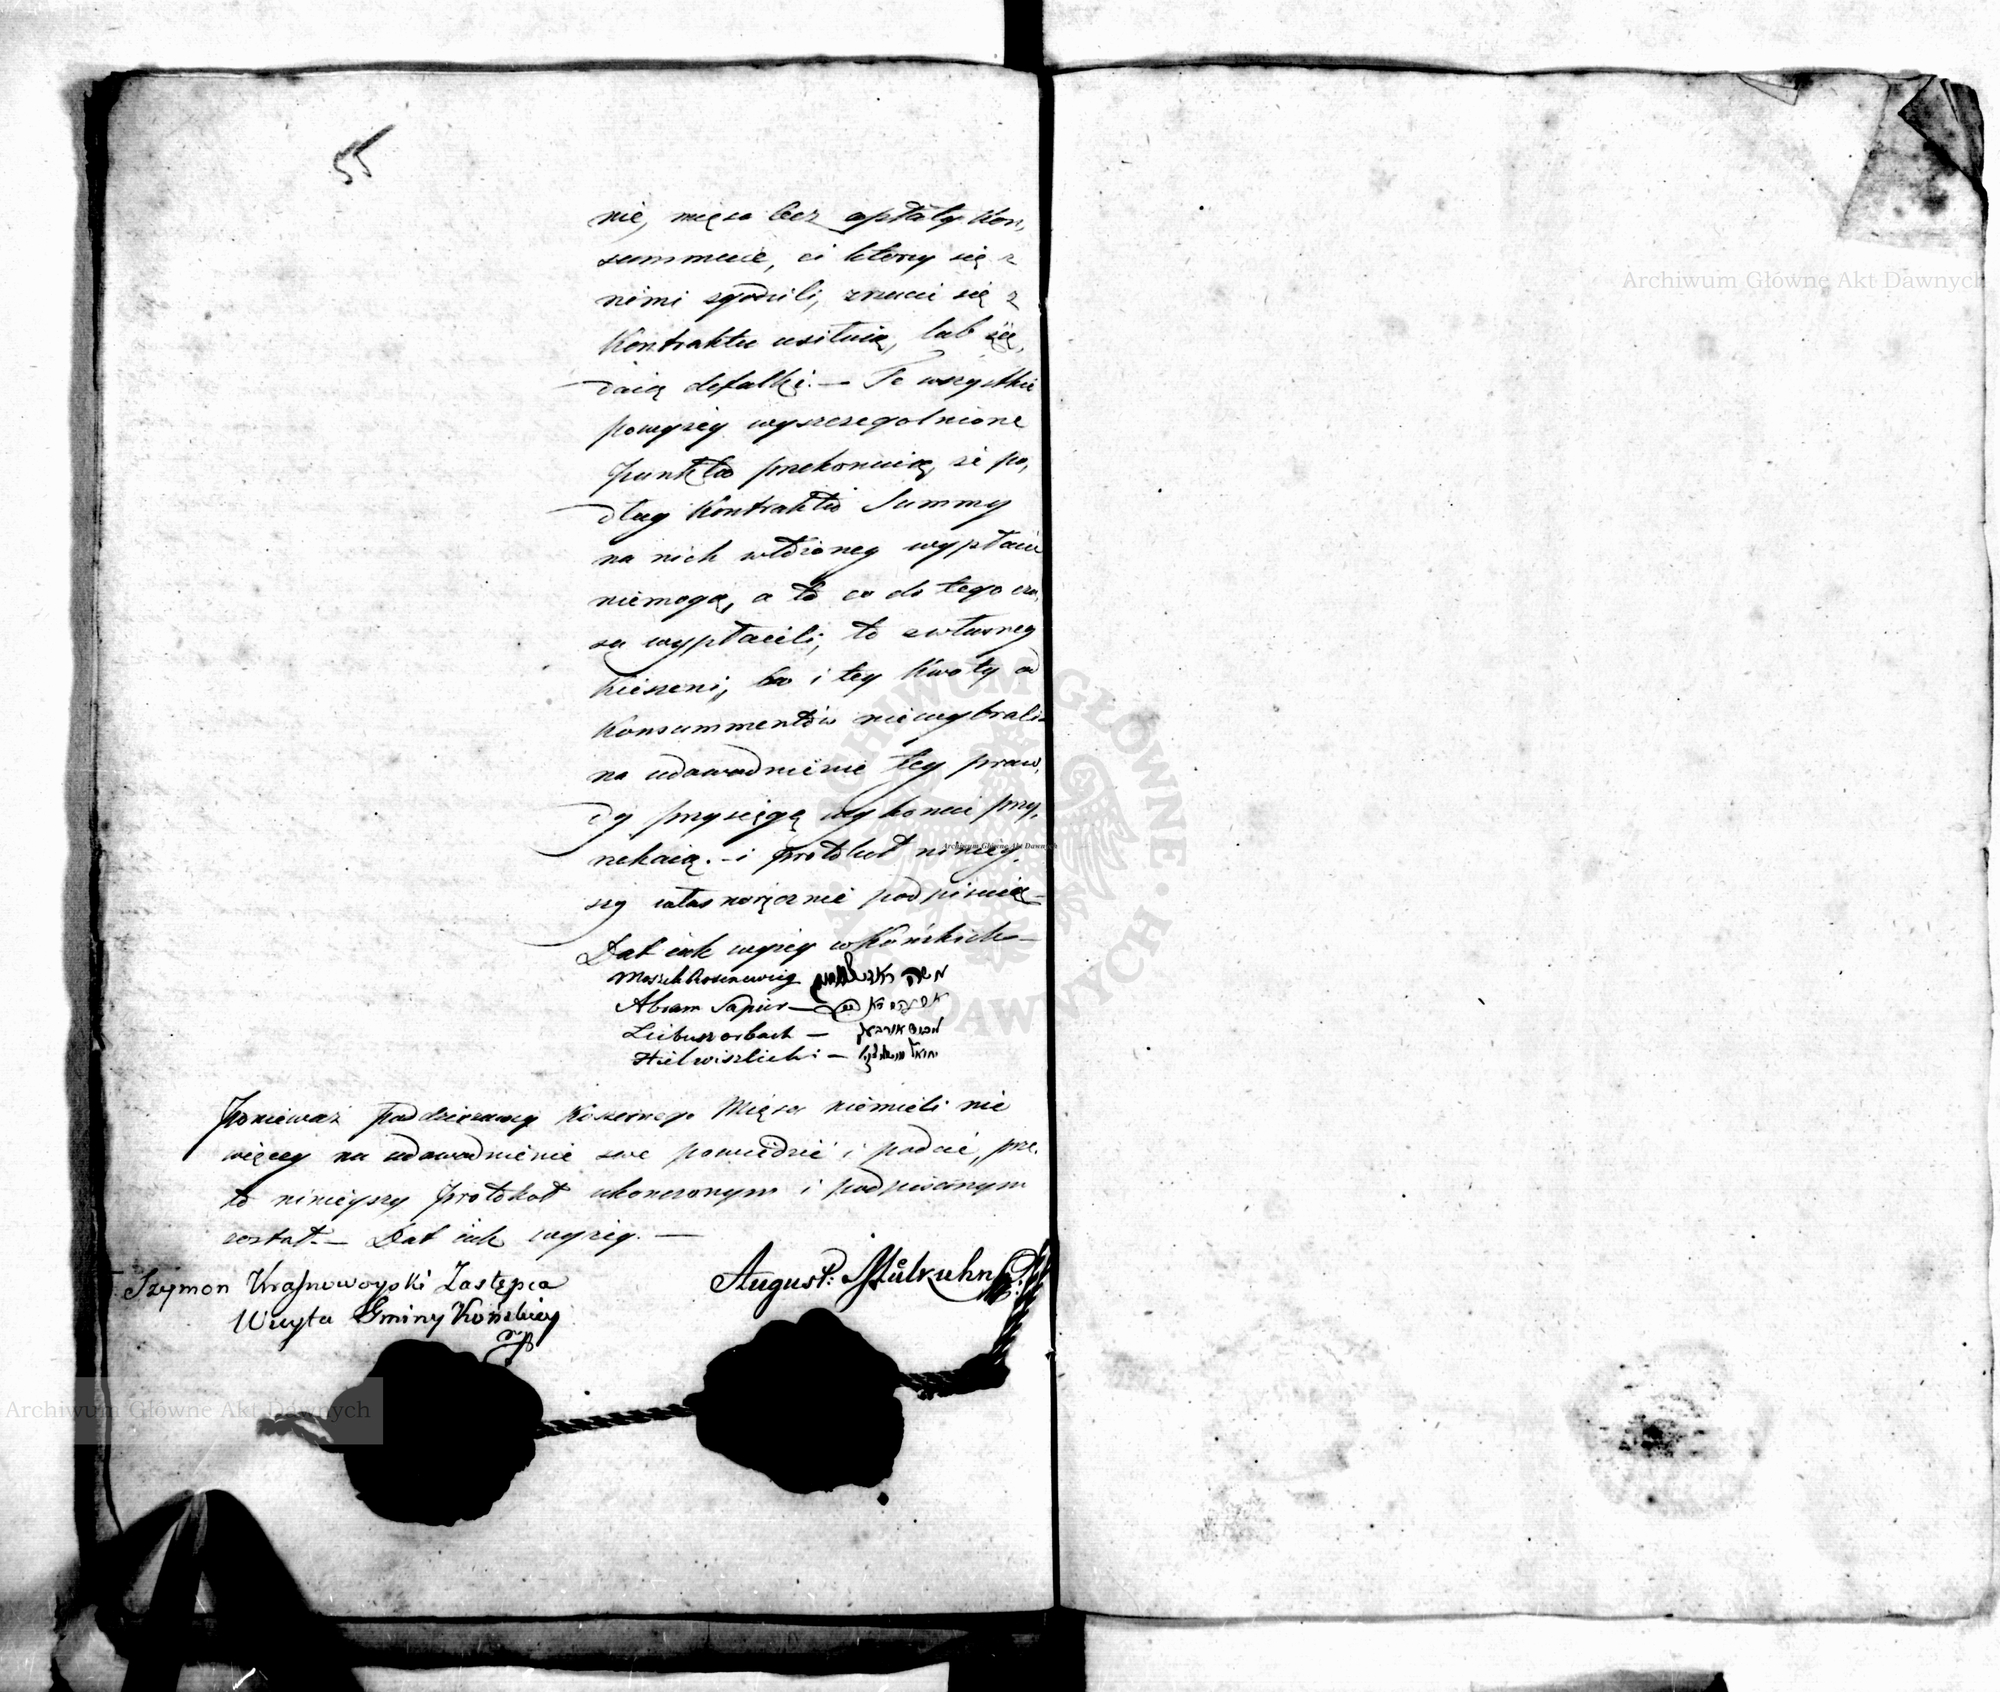 55
nie, mięsa bez opłaty Kon,
summuie, ci którzy się z
nimi zgodzili, zrzucić się z
Kontraktu usiłuią, lub żą,
daią defalki. — Te wszystkie
powyżey wyszczegolnione
Punkta przekonuią, że po,
dług Kontraktu Summy
na nich włożoney wypłacić
niemogą, a to co do tego cza,
su wypłacili, to z własney
Kieszeni, bo i tey Kwoty od
Konsummentów niewybrali
na udowodnienie tey praw,
dy przysięgę wykonać przy,
rzekaią. – i Protokuł niniey,
szy własnoręcznie podpisuią –
Dat iak wyżey w Końskich —
Moszek
משה
Abram Sapir —
Leibusz orbach —
Hil wiszlicki —
Ponieważ Poddzierzawcy Koszernego Mięsa niemieli nic
więcey na udowodnienie swe powiedzieć i podać, prze,
to ninieyszy Protokoł ukończonym i podpisanym
został. — Dat iak wyżey. —
Szymon Zastępca
Woyta Gminy Końskiey
August:
Archiwum Główne Akt Dawnych
Archiwum Główne Akt Dawnych
Archiwum Główne Akt Dawnych
ARCHIWUM GŁÓWNE AKT DAWNYCH